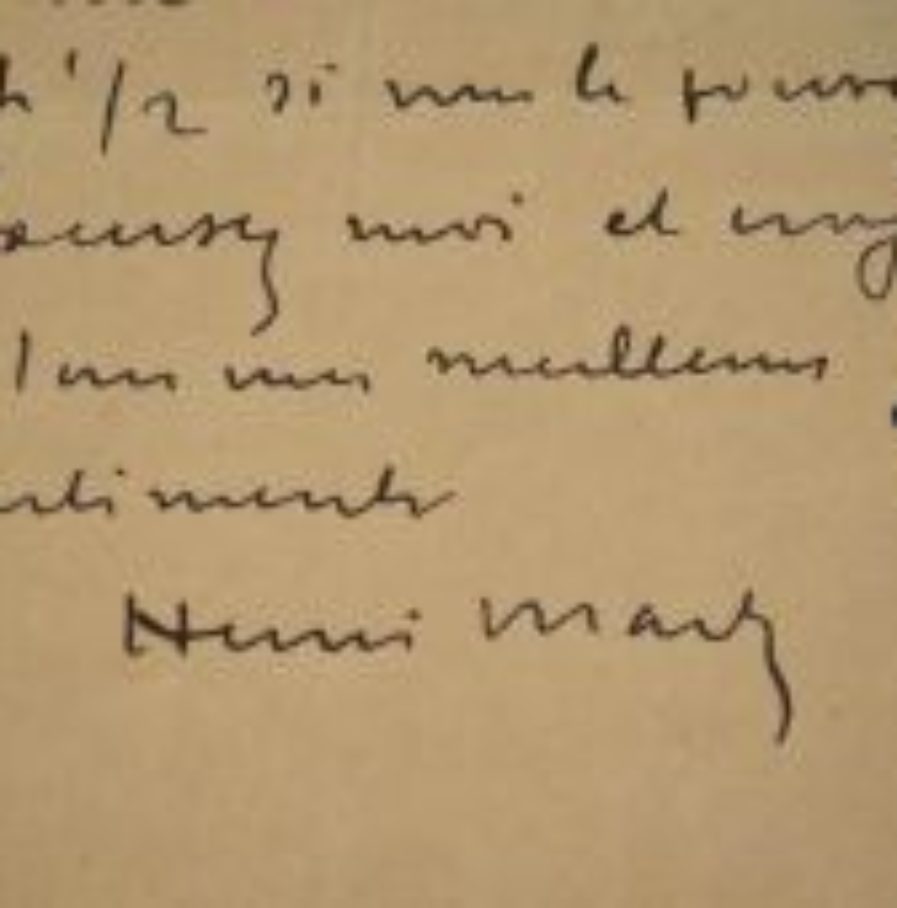 h 1/2 si vous le pouve
xcusez moi et croy
tous mes meilleurs
ntiments
Henri Marty